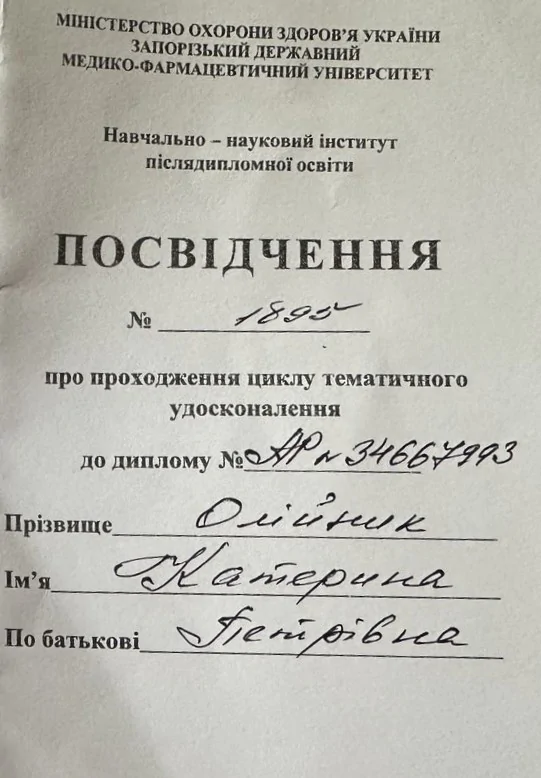 МІНІСТЕРСТВО ОХОРОНИ ЗДОРОВ'Я УКРАЇНИ
ЗАПОРІЗЬКИЙ ДЕРЖАВНИЙ
МЕДИКО-ФАРМАЦЕВТИЧНИЙ УНІВЕРСИТЕТ
Навчально – науковий інститут
післядипломної освіти
ПОСВІДЧЕННЯ
№ 1895
про проходження циклу тематичного
удосконалення
до диплому № АР № 34667993
Прізвище Олійник
Ім'я Катерина
По батькові Петрівна